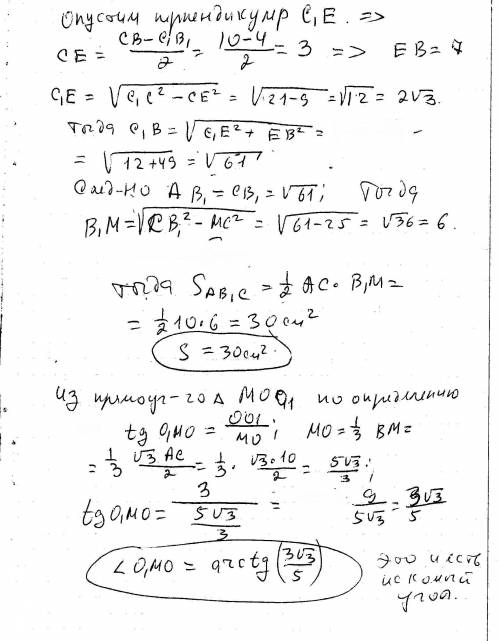 Опустим перпендикуляр C₁E. =>
CE = (CB-C₁B₁)/2 = (10-4)/2 = 3 => EB = 7
C₁E = √(C₁C² - CE²) = √(21-9) = √12 = 2√3.
Тогда C₁B = √(C₁E² + EB²) =
= √(12+49) = √61.
След-но AB₁ = CB₁ = √61; Тогда
B₁M = √(CB₁² - MC²) = √(61-25) = √36 = 6.
Тогда S AB₁C = 1/2 AC · B₁M =
= 1/2 10·6 = 30 см²
S = 30 см².
Из прямоуг-го Δ MOO₁ по определению
tg O₁MO = OO1/MO; MO = 1/3 BM =
= 1/3 √3 AC/2 = 1/3 · √3·10/2 = 5√3/3;
tg O₁MO = 3/(5√3/3) = 9/5√3 = 3√3/5
∠O₁MO = arctg (3√3/5) Это и есть
искомый
угол.